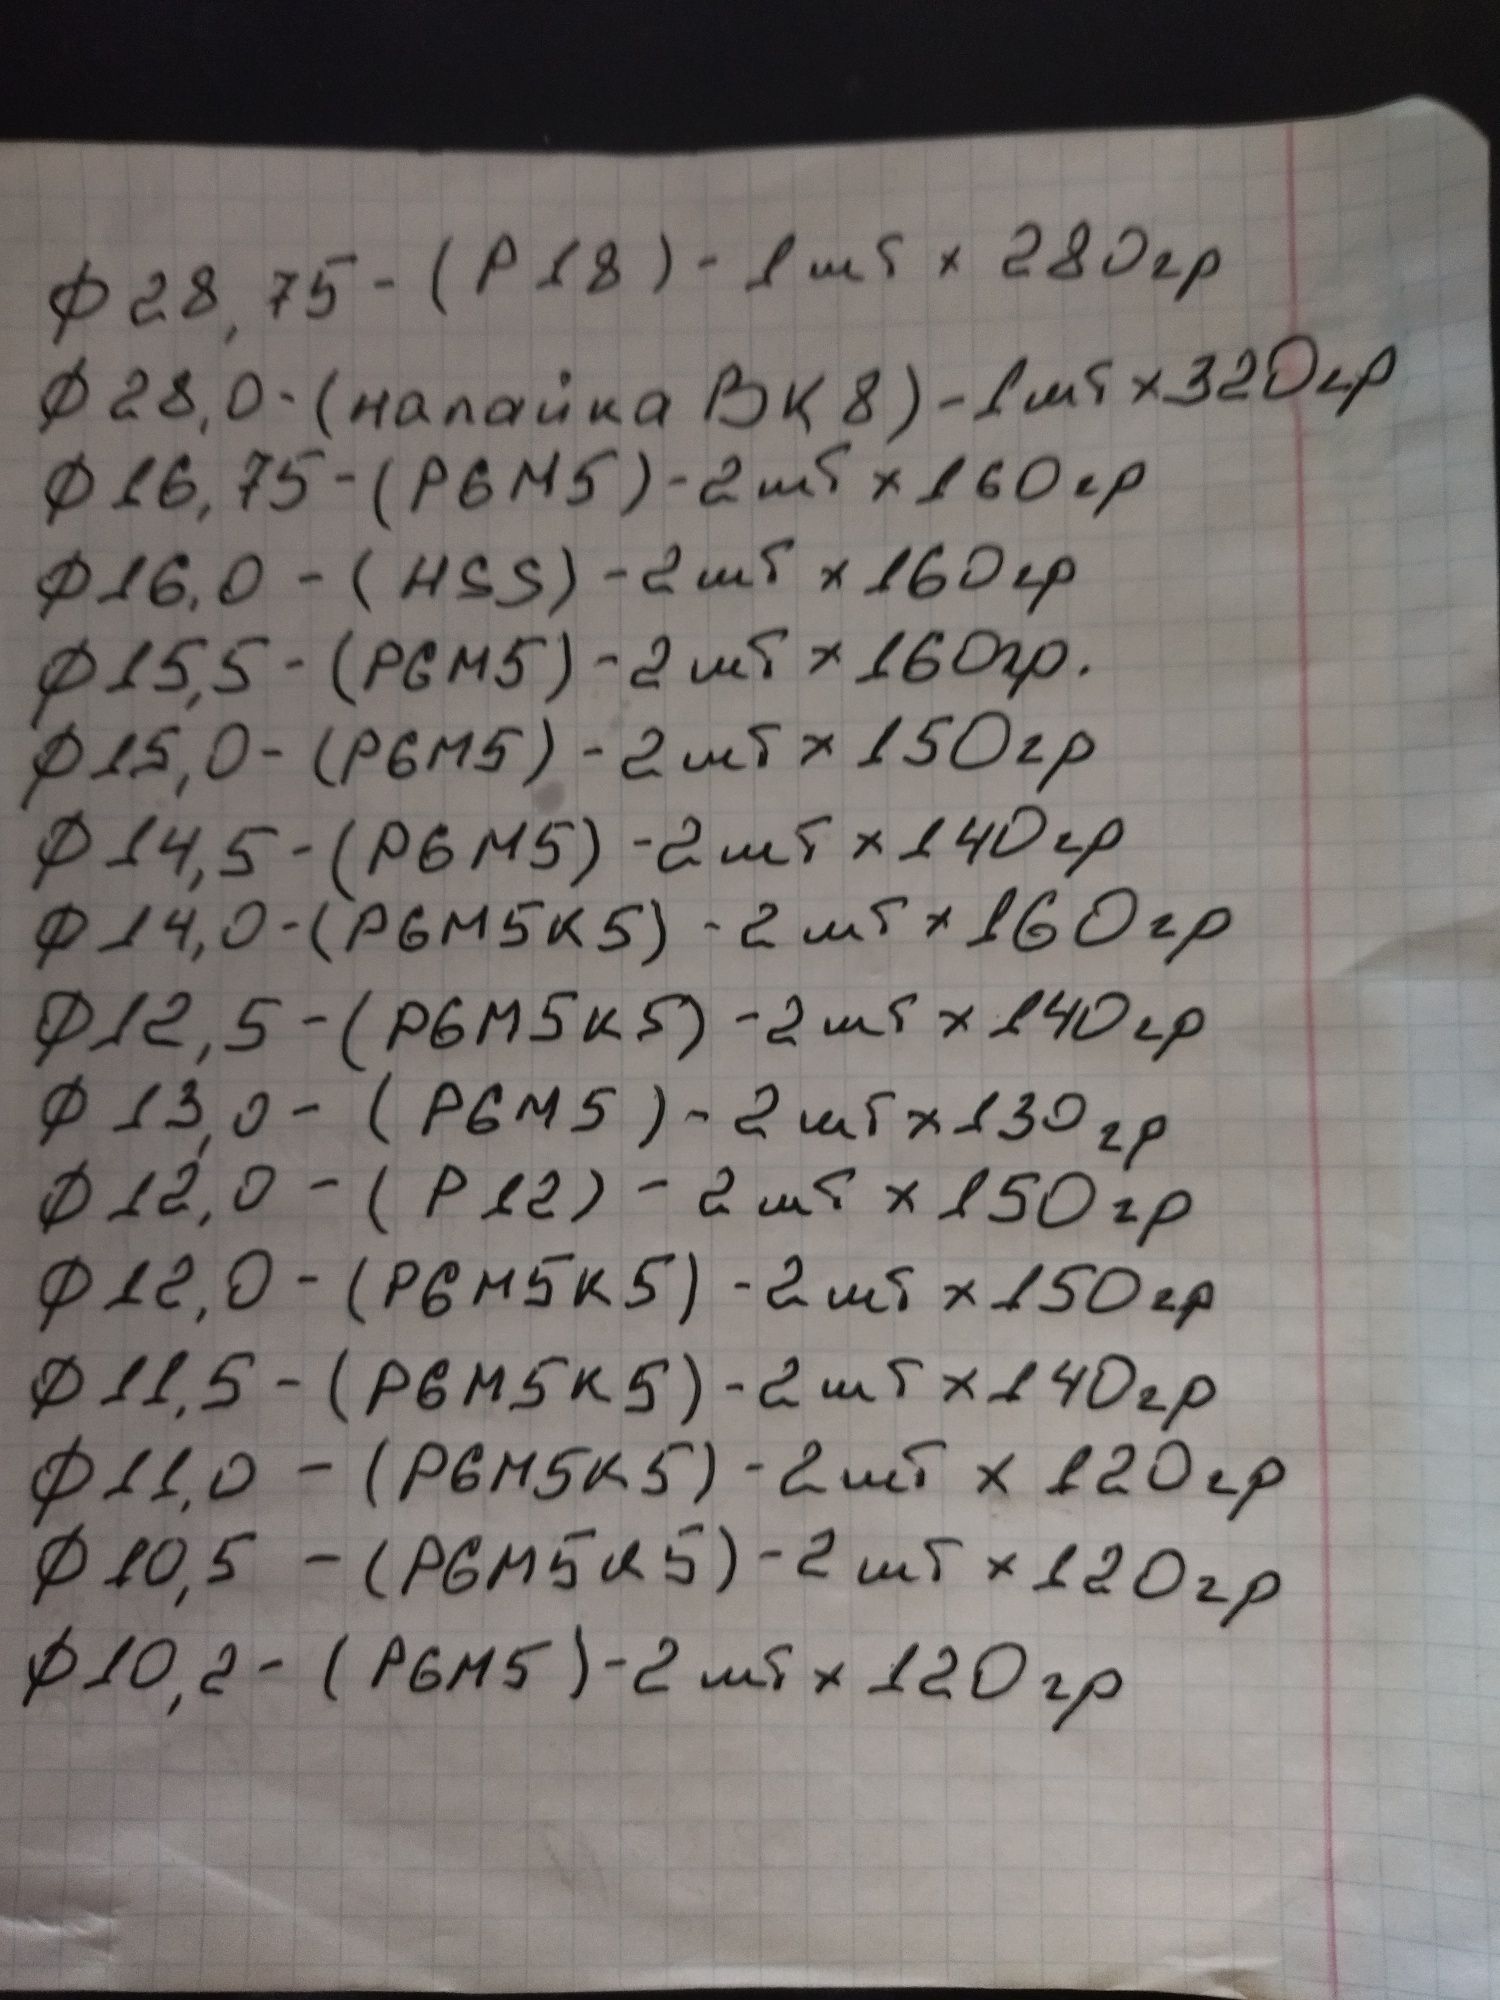 Ф28,75-(Р18)-1шт×280гр
Ф28,0-(напайка ВК8)-1шт×320гр
Ф16,75-(Р6М5)-2шт×160гр
Ф16,0-(HSS)-2шт×160гр
Ф15,5-(Р6М5)-2шт×160гр.
Ф15,0-(Р6М5)-2шт×150гр
Ф14,5-(Р6М5)-2шт×140гр
Ф14,0-(Р6М5К5)-2шт×160гр
Ф12,5-(Р6М5К5)-2шт×140гр
Ф13,0-(Р6М5)-2шт×130гр
Ф12,0-(Р12)-2шт×150гр
Ф12,0-(Р6М5К5)-2шт×150гр
Ф11,5-(Р6М5К5)-2шт×140гр
Ф11,0-(Р6М5К5)-2шт×120гр
Ф10,5-(Р6М5К5)-2шт×120гр
Ф10,2-(Р6М5)-2шт×120гр